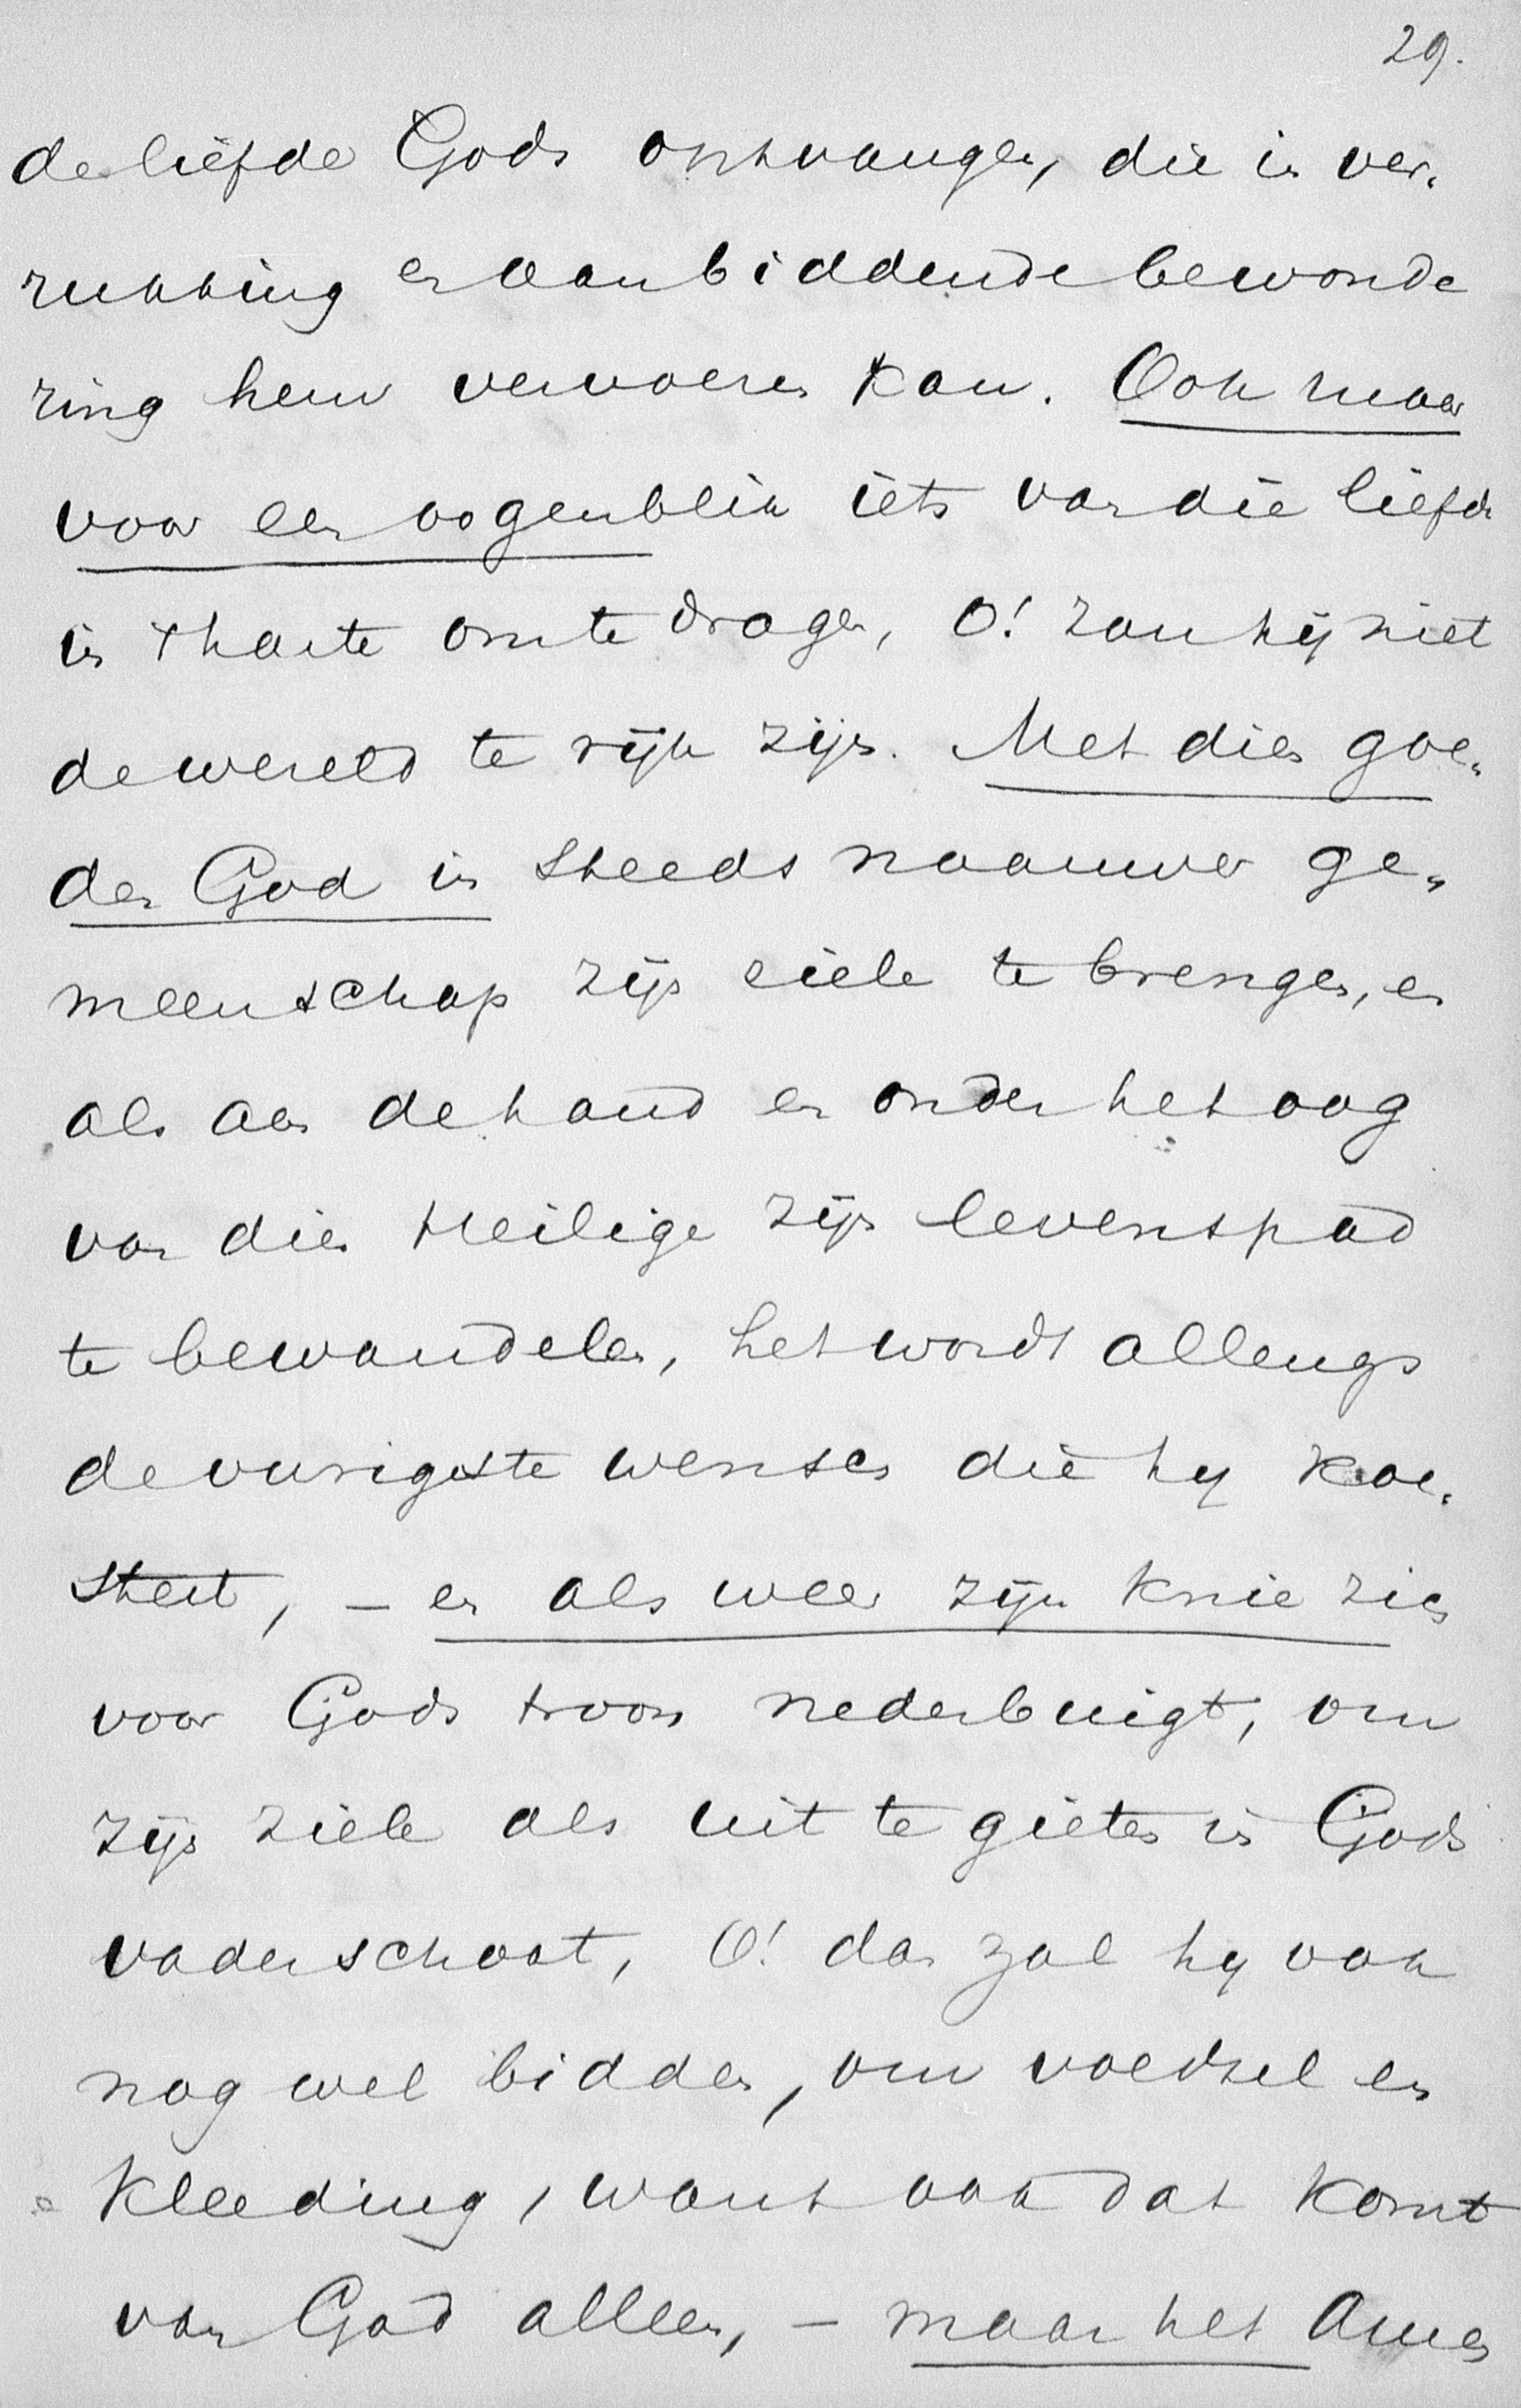 29.
de liefde Gods ontvangen, die in ver-
rukking en aanbiddende bewonde
ring hem vervoeren kan. Ook maar
voor een oogenblik iets van die liefde
in 't harte om te dragen, O! zou hij niet
de wereld te rijk zijn. Met dien goe-
den God in steeds naauwer ge-
meenschap zijn ziele te brengen, en
als aan de hand en onder het oog
van dien Heilige zijn levenspad
te bewandelen, het wordt allengs
de vurigste wensch die hy koe-
stert, – en als weer zijn knie zich
voor Gods troon nederbuigt, om
zijn ziele als uit te gieten in Gods
vaderschoot, O! dan zal hy ook
nog wel bidden, om voedsel en
kleeding, want ook dat komt
van God alleen, – maar het Amen